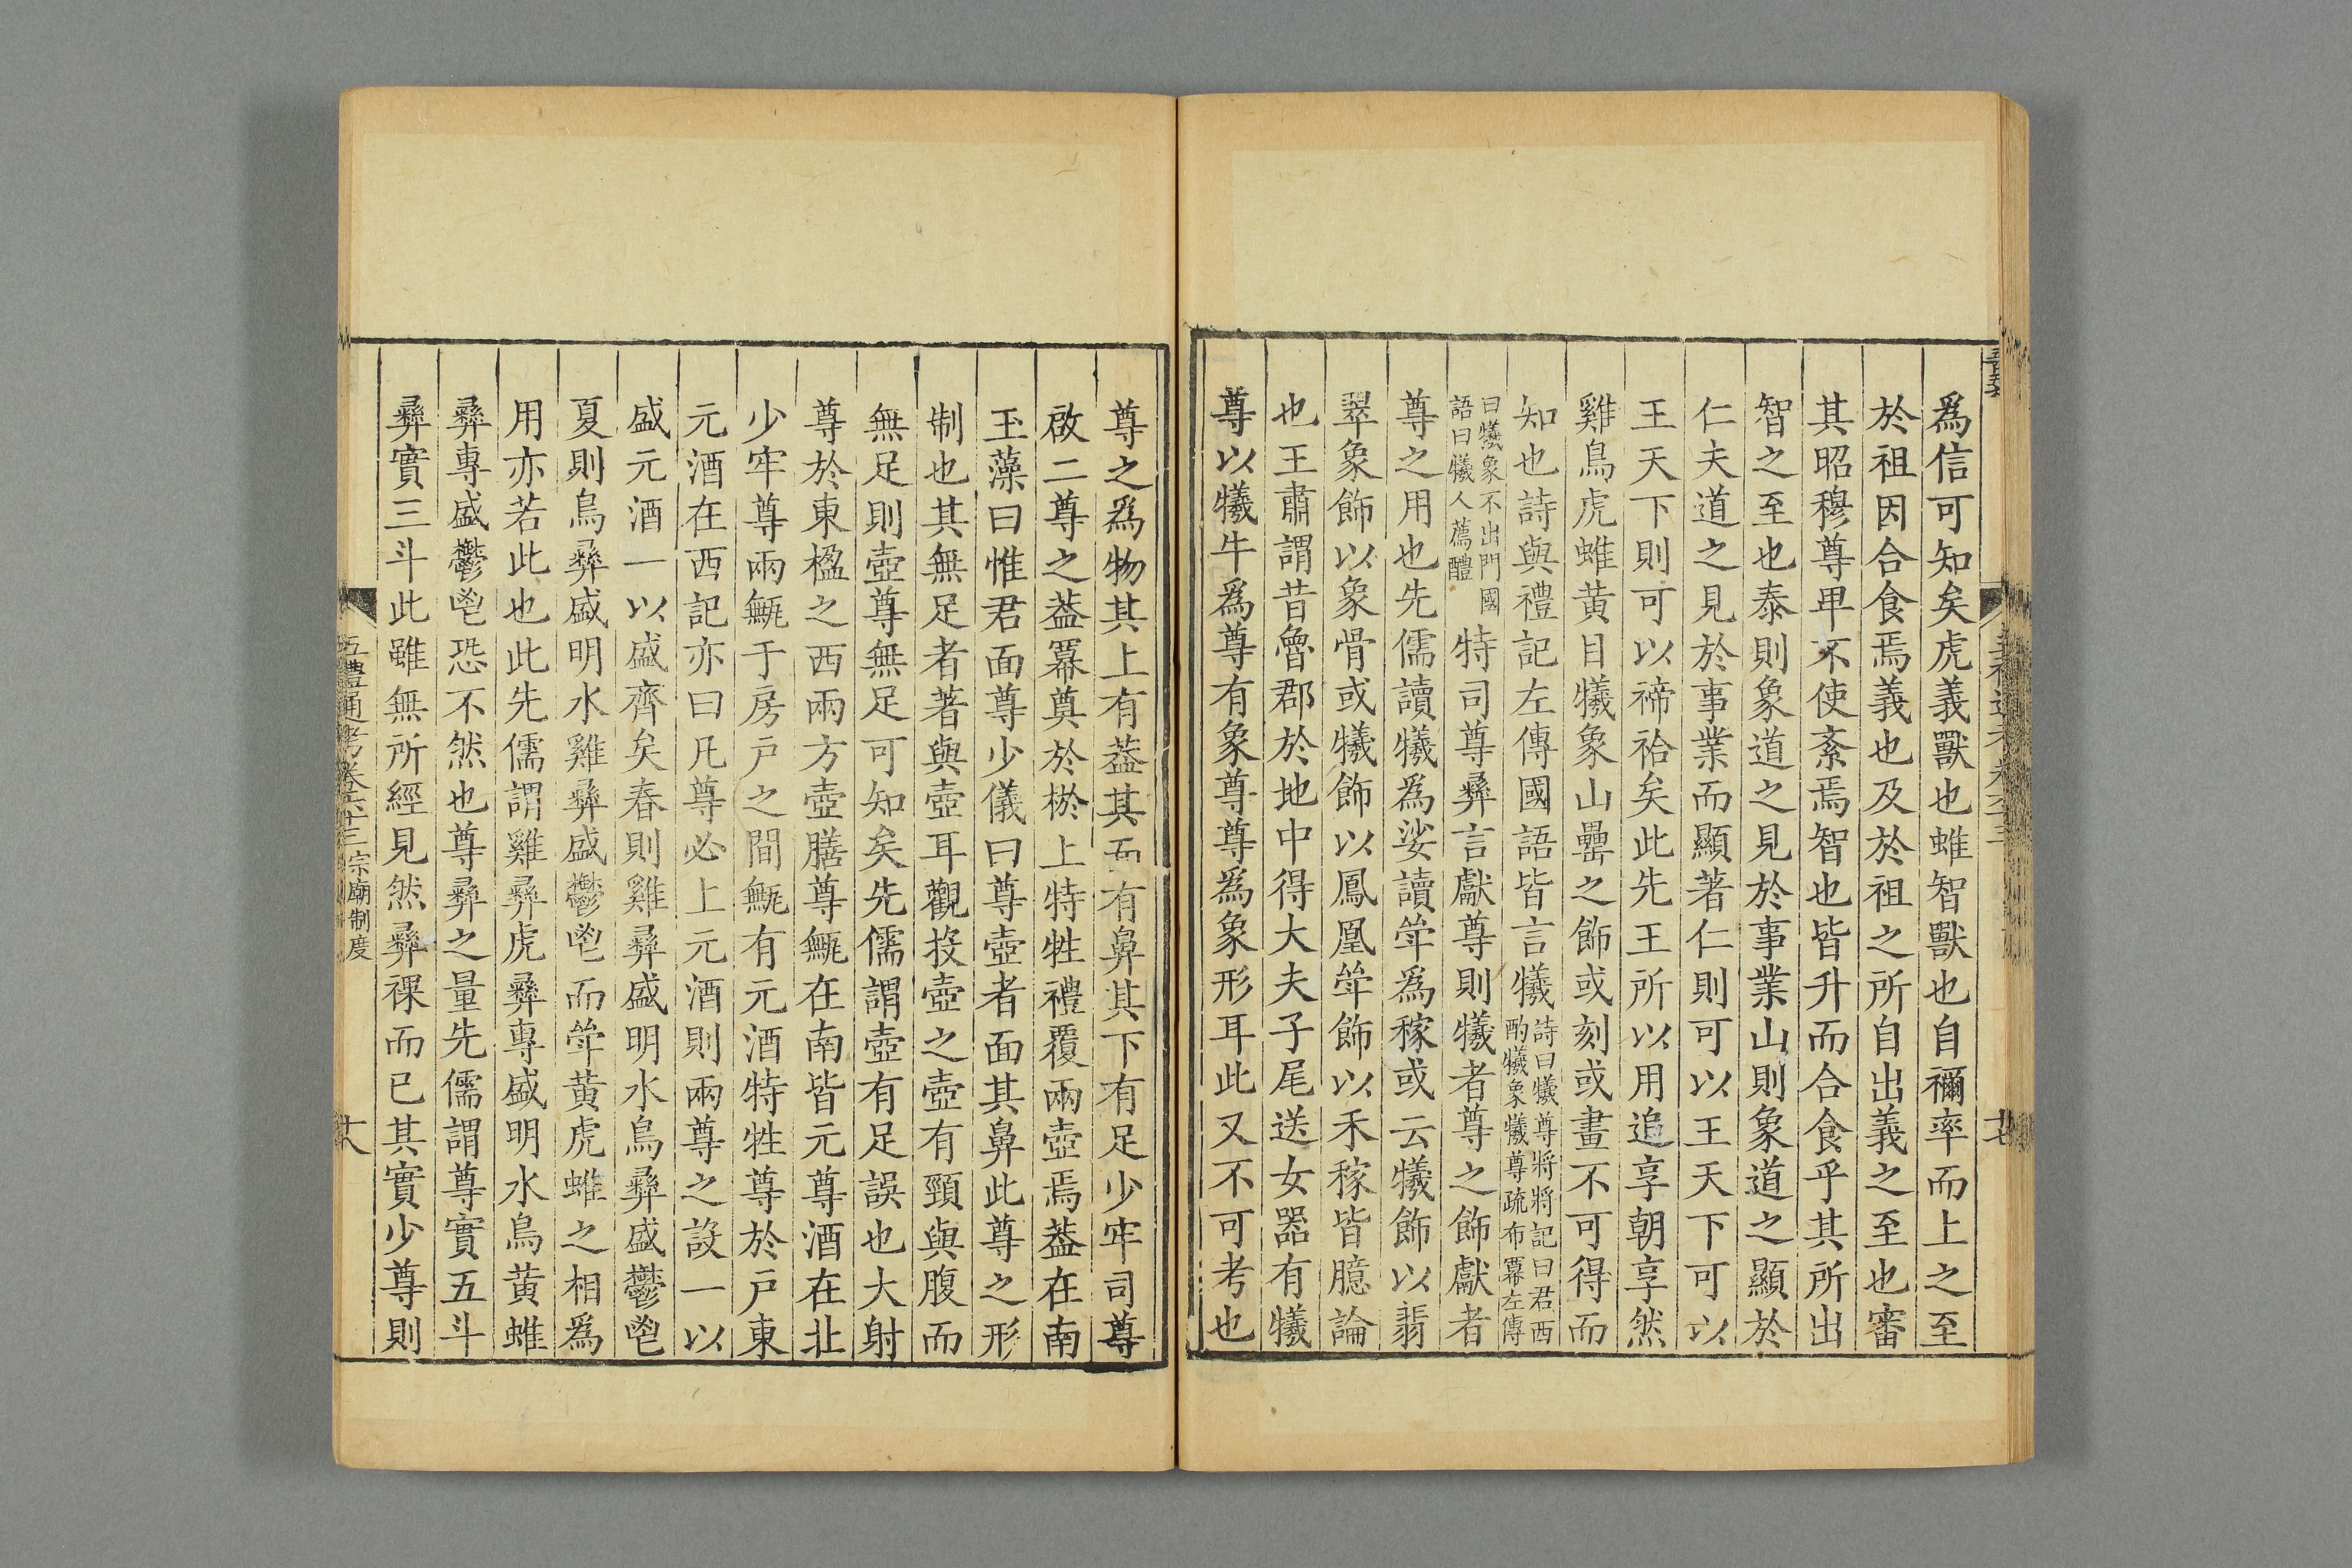 爲信可知矣虎義獸也蜼智獸也自禰率而上之至
於祖因合食焉義也及於祖之所自出義之至也審
其昭穆尊甲不使紊焉智也皆升而合食乎其所出
智之至也泰則象道之見於事業山則象道之顯於
仁夫道之見於事業而顯著仁則可以王天下可以
王天下則可以禘祫矣此先王所以用追享朝享然
雞鳥虎蜼黄目犧象山罍之飾或刻或畫不可得而
知也詩與禮記左傳國語皆言犧詩曰犧尊將將記曰君西酌犧象犧尊疏布羃左傳
曰犧象不出門國語曰犧人薦醴特司尊彞言獻尊則犧者尊之飾獻者
尊之用也先儒讀犧爲娑讀斝爲稼或云犧飾以翡
翠象飾以象骨或犧飾以鳳凰斝飾以禾稼皆臆論
也王肅謂昔魯郡於地中得大夫子尾送女器有犧
尊以犧牛爲尊有象尊尊爲象形耳此又不可考也
尊之爲物其上有葢其面有鼻其下有足少牢司尊
啟二尊之葢羃奠於棜上特牲禮覆兩壺焉葢在南
玉藻曰惟君面尊少儀曰尊壺者面其鼻此尊之形
制也其無足者著與壺耳觀投壺之壺有頸與腹而
無足則壺尊無足可知矣先儒謂壺有足誤也大射
尊於東楹之西兩方壺膳尊甒在南皆元尊酒在北
少牢尊兩甒于房戸之間甒有元酒特牲尊於戸東
元酒在西記亦曰凡尊必上元酒則兩尊之設一以
盛元酒一以盛齊矣春則雞彞盛明水鳥彞盛鬱鬯
夏則鳥彞盛明水雞彞盛鬱鬯而斝黄虎蜼之相爲
用亦若此也此先儒謂雞彞虎彞專盛明水鳥黄蜼
彞專盛鬱鬯恐不然也尊彞之量先儒謂尊實五斗
彞實三斗此雖無所經見然彞裸而已其實少尊則
五禮通考卷六十三宗廟制度
十八